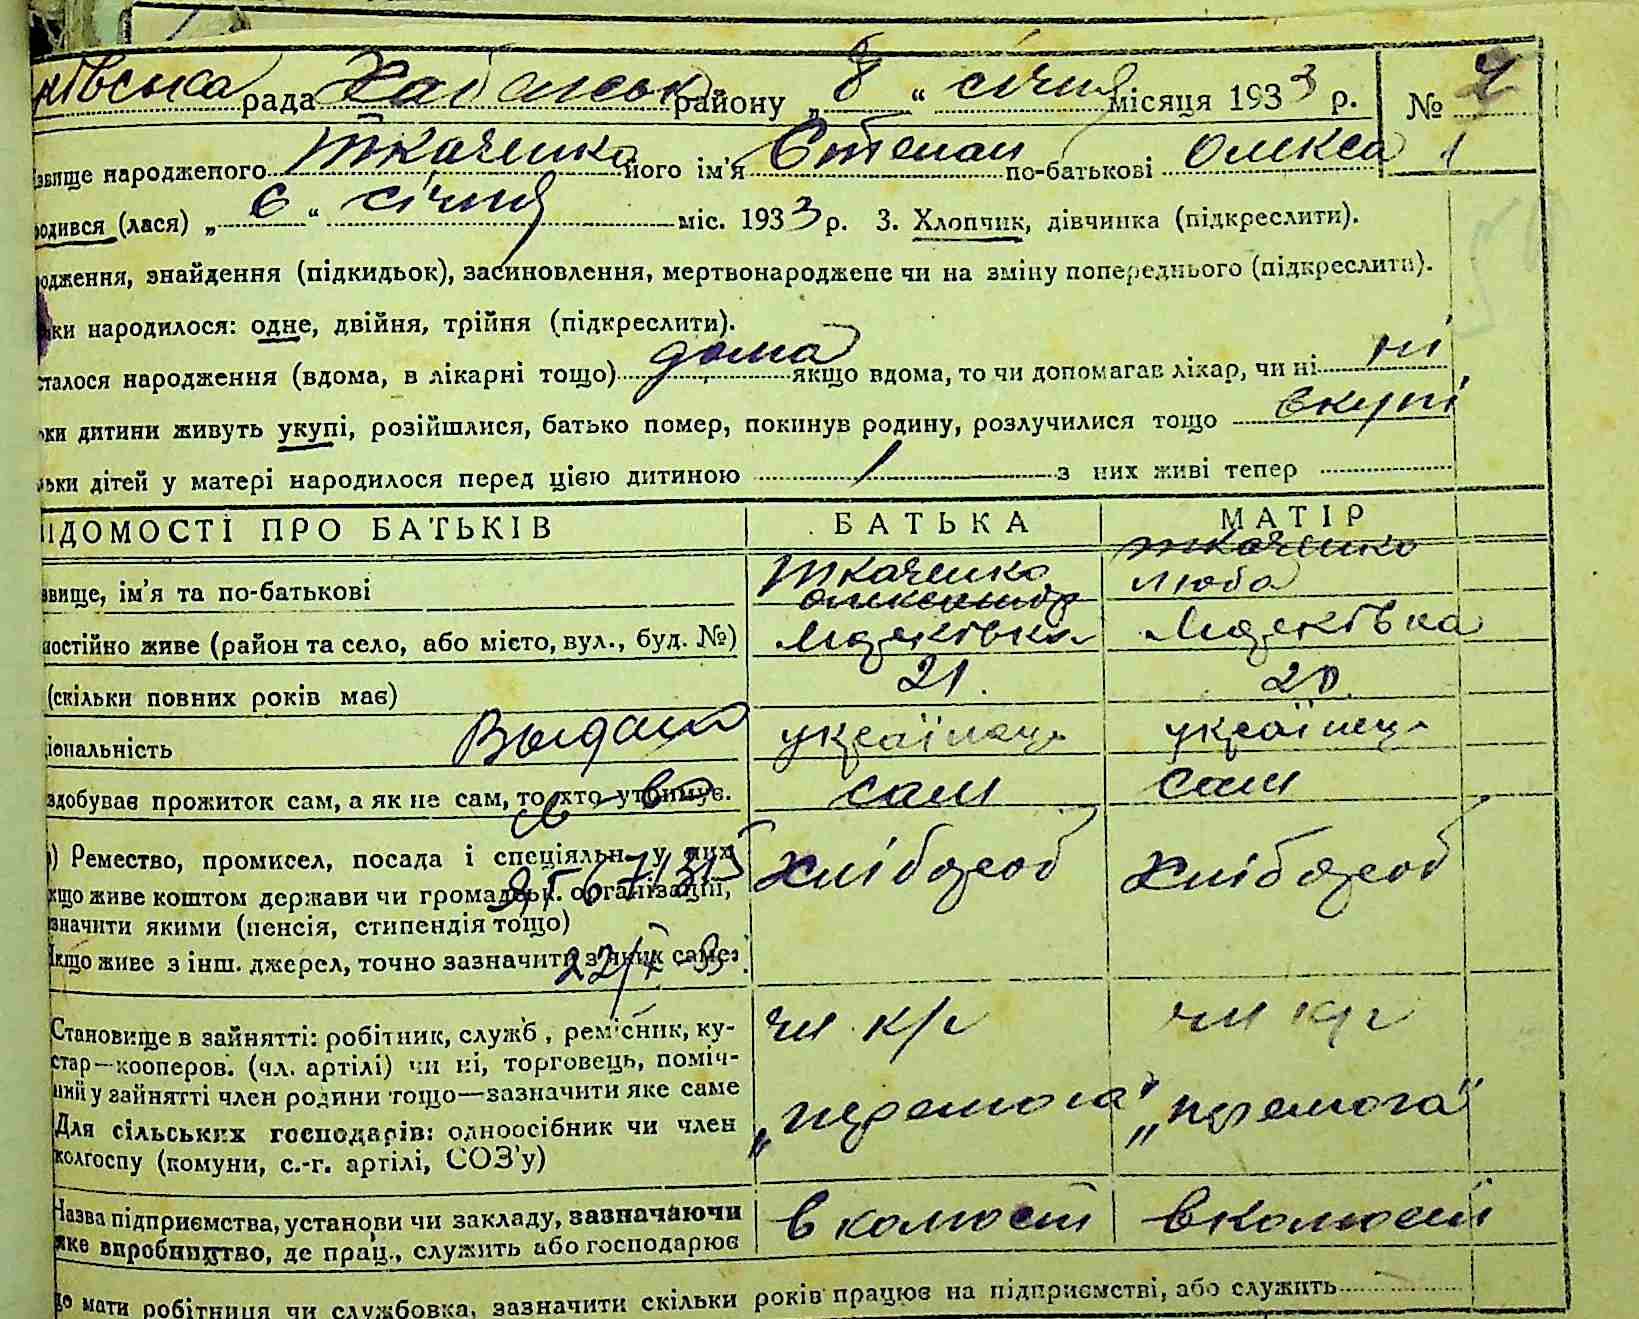 рада Хабанськ району „ 8 “ січня місяця 1933 р. № 2
звище народженого Ткаченко його ім'я Степан по-батькові Олекса 1
одився (лася) „ 6 “ січня міс. 1933 р. 3. Хлопчик, дівчинка (підкреслити).
одження, знайдення (підкидьок), засиновлення, мертвонароджене чи на зміну попереднього (підкреслити).
ки народилося: одне, двійня, трійня (підкреслити).
талося народження (вдома, в лікарні тощо) дома якщо вдома, то чи допомагав лікар, чи ні ні
ьки дитини живуть укупі, розійшлися, батько помер, покинув родину, розлучилися тощо вкупі
ьки дітей у матері народилося перед цією дитиною 1 з них живі тепер
ІДОМОСТІ ПРО БАТЬКІВ БАТЬКА МАТІР
звище, ім'я та по-батькові Ткаченко Олександр Ткаченко Люба
постійно живе (район та село, або місто, вул., буд. №)
(скільки повних років має) 21. 20.
іональність українец українец
Выдано
здобуває прожиток сам, а як не сам, то хто утримує. сам сам
св-во
) Ремество, промисел, посада і спеціяльн. у них Хлібороб Хлібороб
кщо живе коштом держави чи громадськ. організацій,
значити якими (пенсія, стипендія тощо)
Якщо живе з інш. джерел, точно зазначити з яких саме:
Становище в зайнятті: робітник, служб, ремісник, ку- чл к/г чл к/г
стар—кооперов. (чл. артілі) чи ні, торговець, поміч-
ний у зайнятті член родини тощо—зазначити яке саме „перемога" „перемога"
Для сільських господарів: одноосібник чи член
колгоспу (комуни, с.-г. артілі, СОЗ'у)
Назва підприємства, установи чи закладу, зазначаючи в колгоспі в колгоспі
яке виробництво, де прац., служить або господарює
що мати робітниця чи службовка, зазначити скільки років працює на підприємстві, або служить